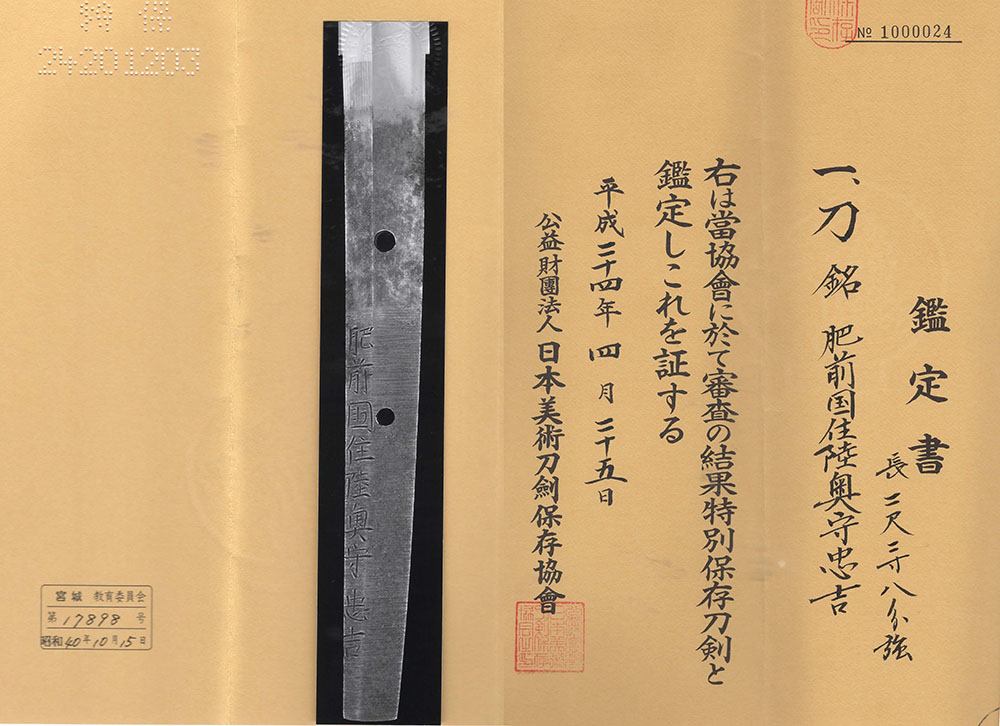 № 1000024
鑑定書
一、刀 銘 肥前国住陸奥守忠吉
長二尺三寸八分強
右は當協會に於て審査の結果特別保存刀剣と
鑑定しこれを証する
平成二十四年四月二十五日
公益財團法人 日本美術刀劍保存協會
肥前国住陸奥守忠吉
特保
24201203
宮城 教育委員会
第17898号
昭和40年10月15日